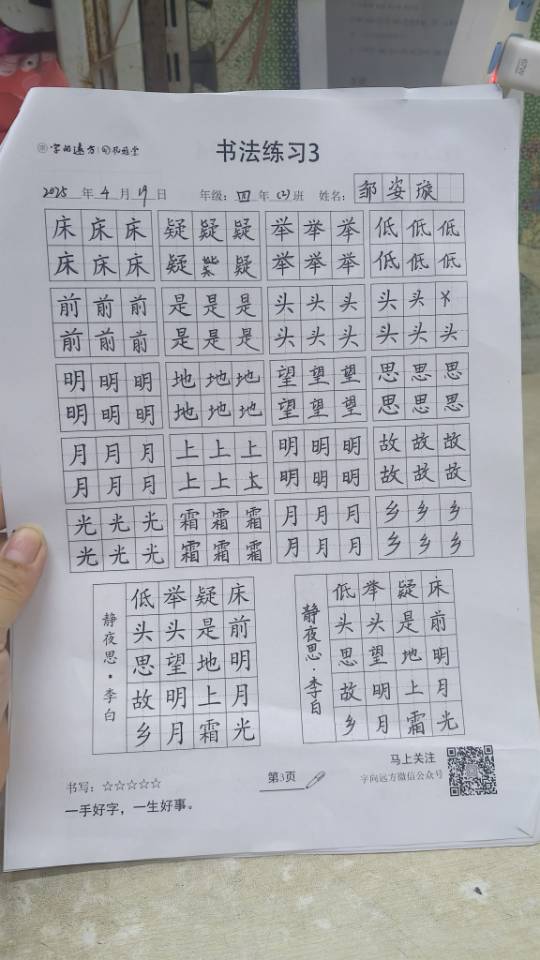 字向远方 孔庙堂 书法练习3
2025 年 4 月 19 日 年级: 四 年 (2) 班 姓名: 邹姿璇
床床床 疑疑疑 举举举 低低低
床床床 疑 疑 举举举 低低低
前前前 是是是 头头头 头头
前前前 是是是 头头头 头头头
明明明 地地地 望望望 思思思
明明明 地地地 望望望 思思思
月月月 上上上 明明明 故故故
月月月 上上上 明明明 故故故
光光光 霜霜霜 月月月 乡乡乡
光光光 霜霜霜 月月月 乡乡乡
床前明月光
疑是地上霜
举头望明月
低头思故乡
静夜思·李白
床前明月光
疑是地上霜
举头望明月
低头思故乡
静夜思·李白
书写: ☆☆☆☆☆
一手好字，一生好事。
第3页
马上关注
字向远方微信公众号